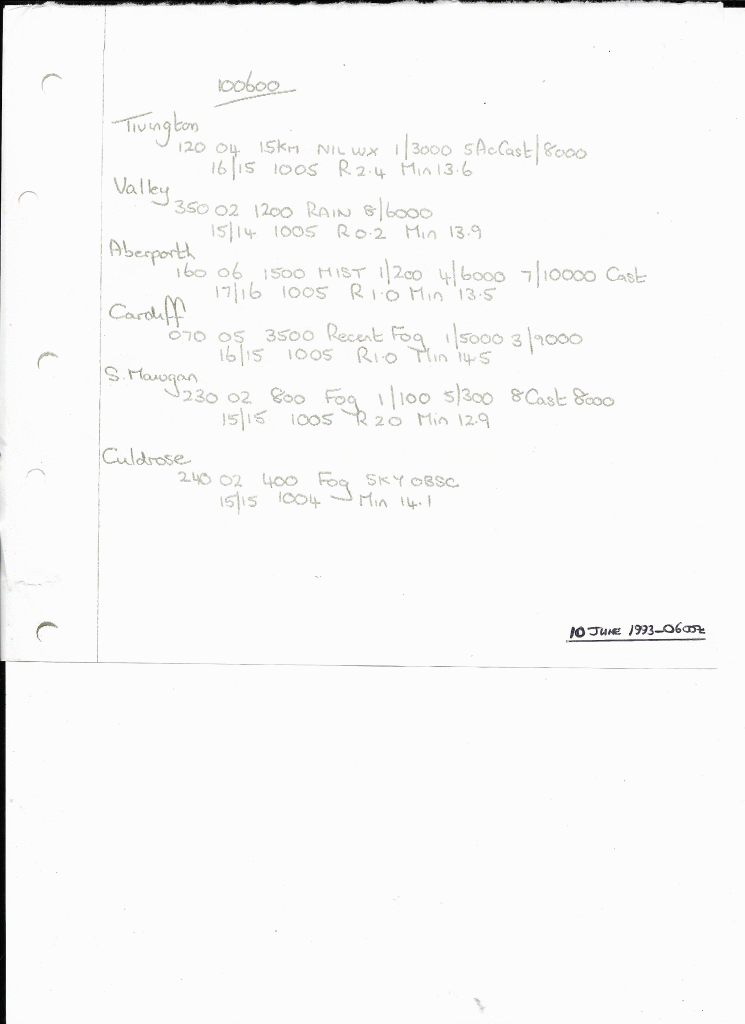 100600
Tivington
120 04 15KM NIL WX 1/3000 5AcCast/8000
16/15 1005 R2.4 Min 13.6
Valley
350 02 1200 RAIN 8/6000
15/14 1005 R0.2 Min 13.9
Aberporth
160 06 1500 MIST 1/200 4/6000 7/10000 Cast
17/16 1005 R1.0 Min 13.5
Cardiff
070 05 3500 Recent Fog 1/5000 3/9000
16/15 1005 R1.0 Min 14.5
S. Mawgan
230 02 800 Fog 1/100 5/300 8Cast 8000
15/15 1005 R20 Min 12.9
Culdrose
240 02 400 Fog SKY OBSC
15/15 1004 Min 14.1
10 JUNE 1993-0600z